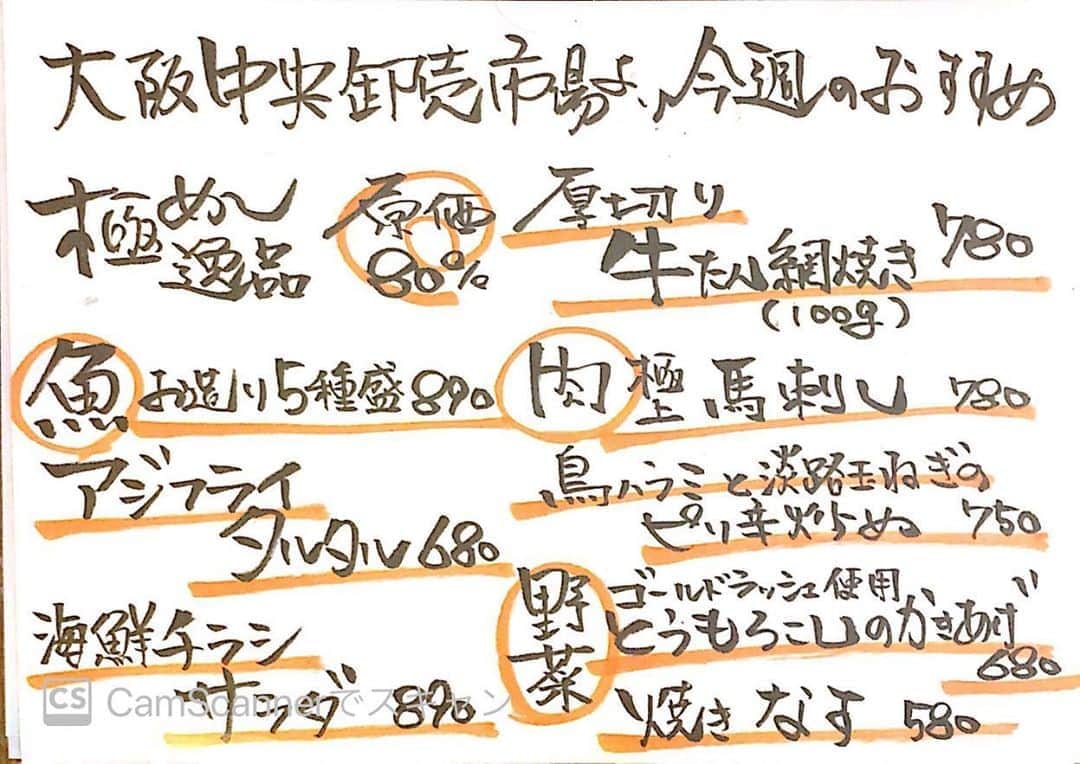 大阪中央卸売市場より今週のおすすめ
極めつ
逸品
原価
80%
魚 お造り5種盛 890
アジフライ
タルタル 680
海鮮チラシ
サラダ 890
厚切り
牛たん網焼き 780
(100g)
肉 極上 馬刺し 780
鳥ハラミと淡路玉ねぎの
ピリ辛炒め 750
野菜 ゴールドラッシュ使用
とうもろこしのかきあげ
680
焼きなす 580
CS CamScannerでスキャン